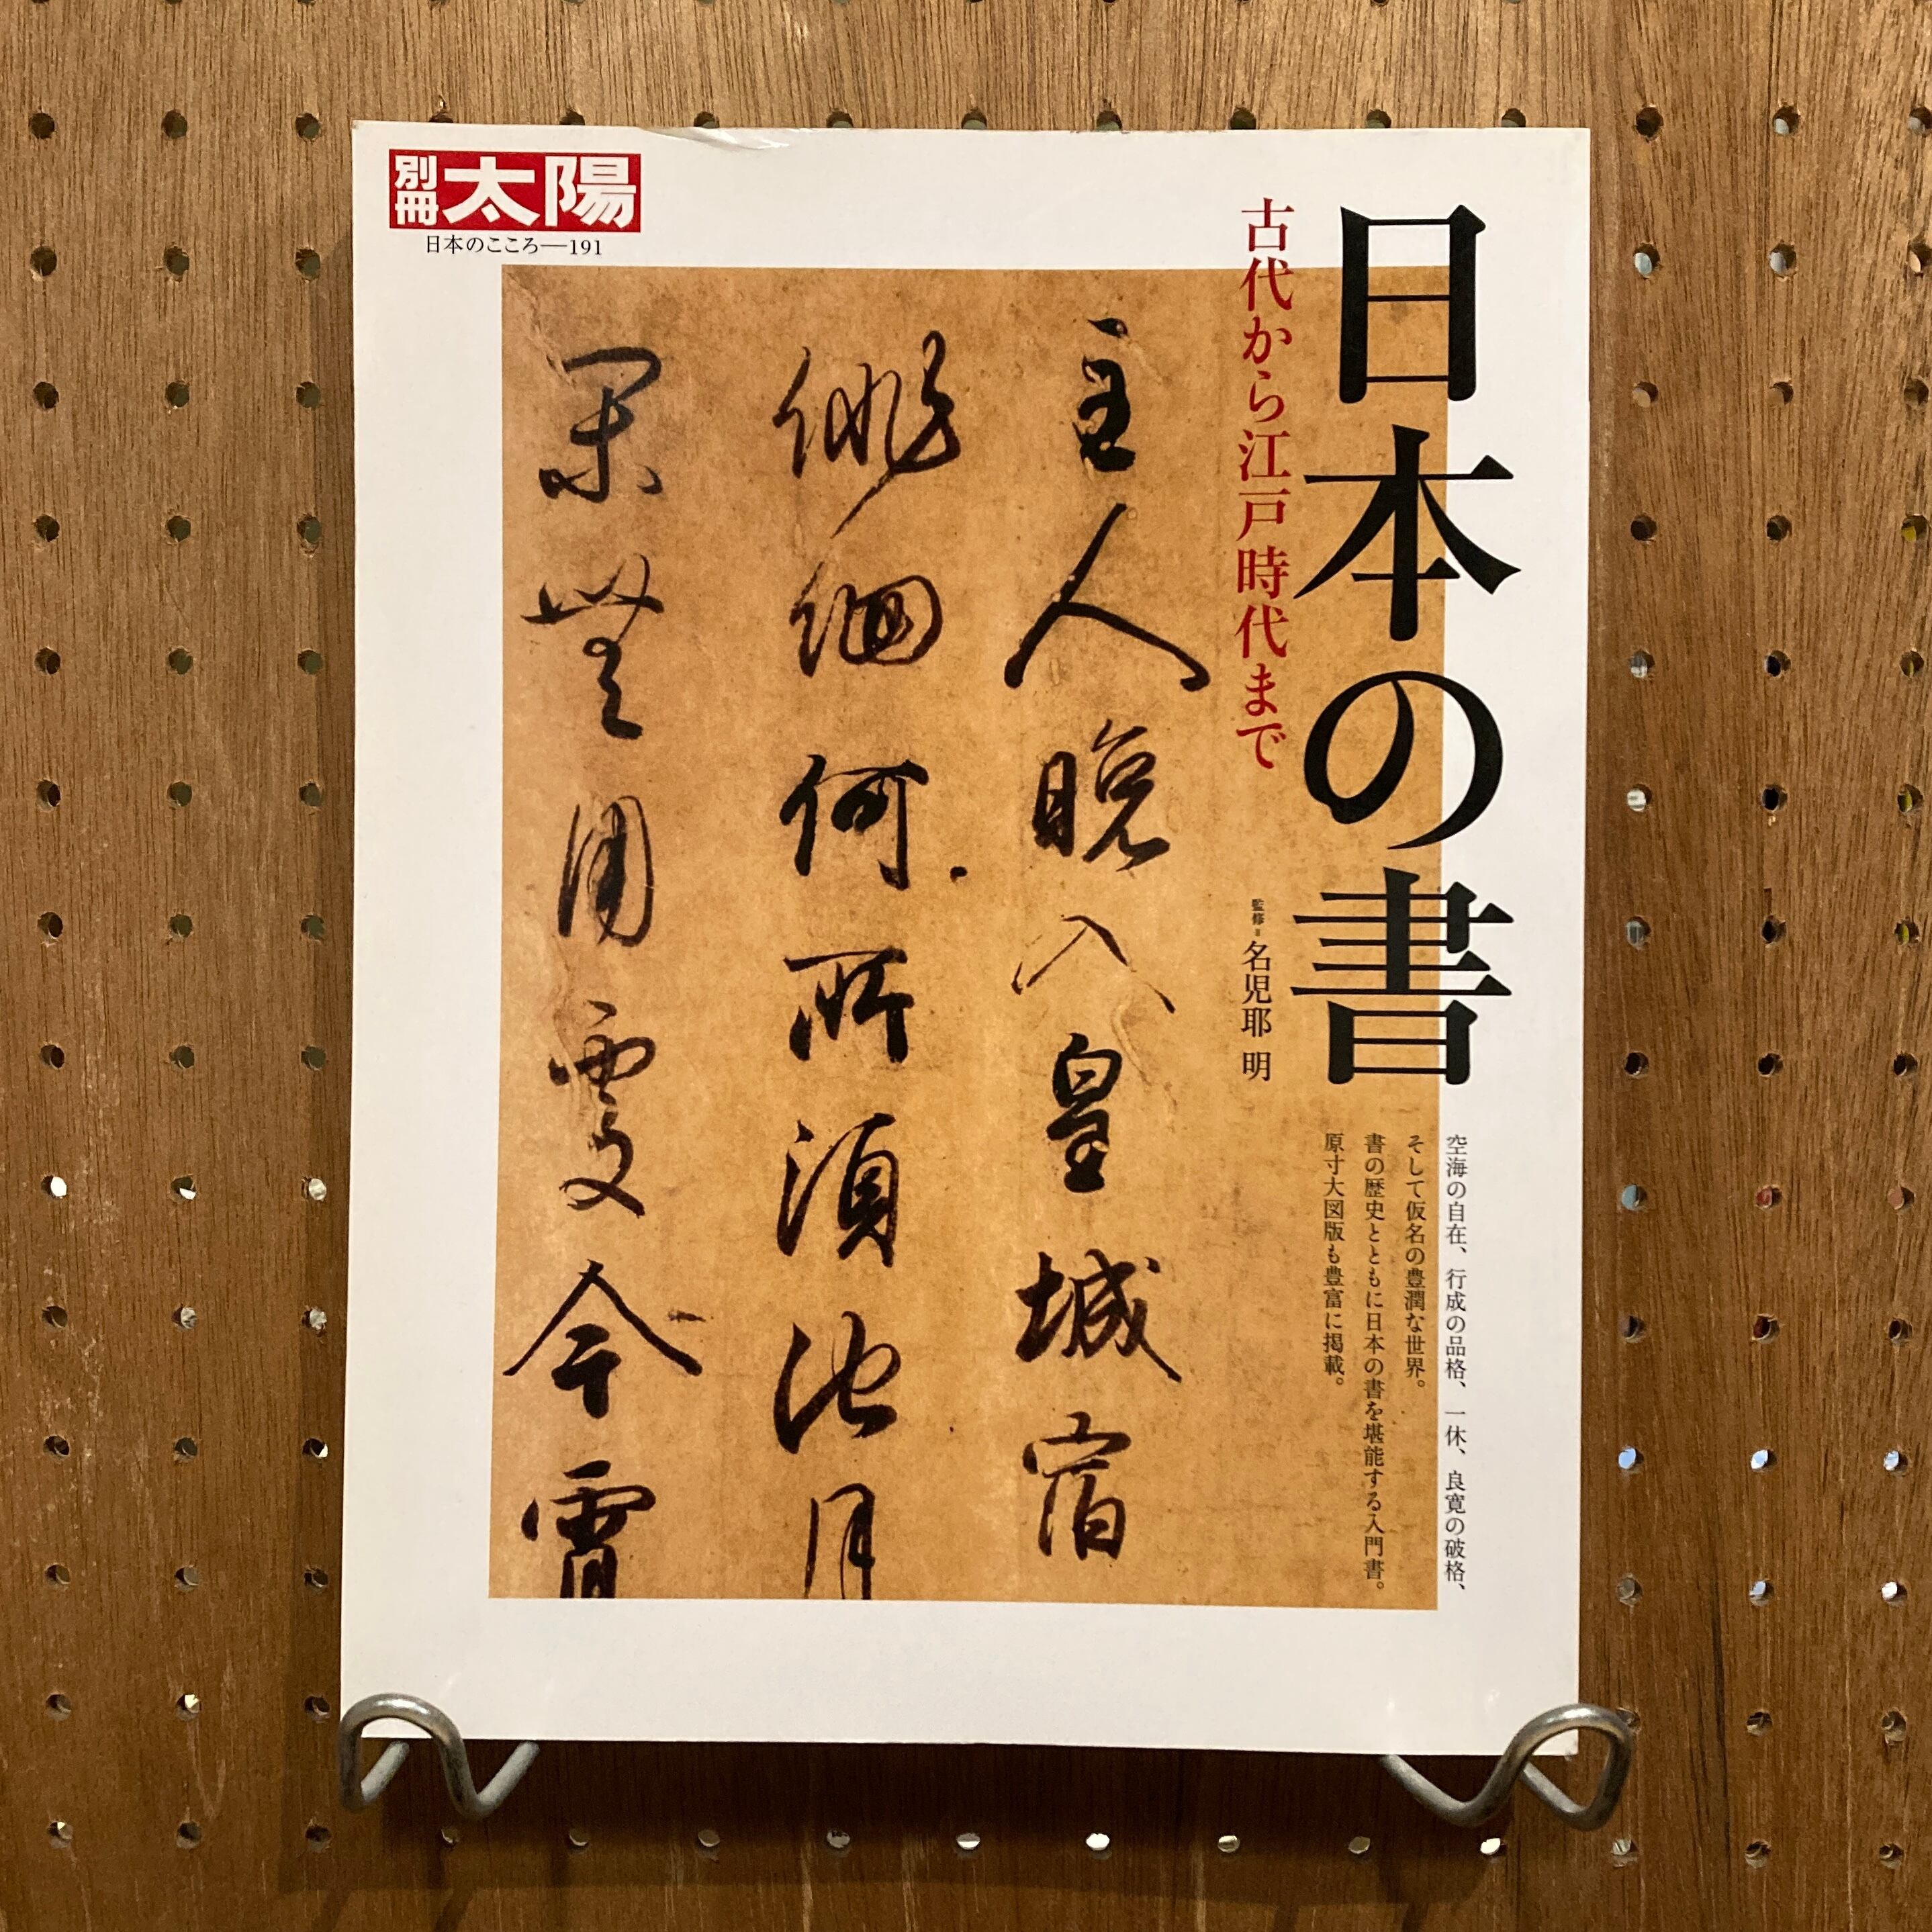 別冊太陽
日本のこころ—191
日本の書
古代から江戸時代まで
監修=名児耶 明
空海の自在、行成の品格、一休、良寛の破格、
そして仮名の豊潤な世界。
書の歴史とともに日本の書を堪能する入門書。
原寸大図版も豊富に掲載。
主人晩入皇城宿
徘徊何所須池月
閑無用處今霄